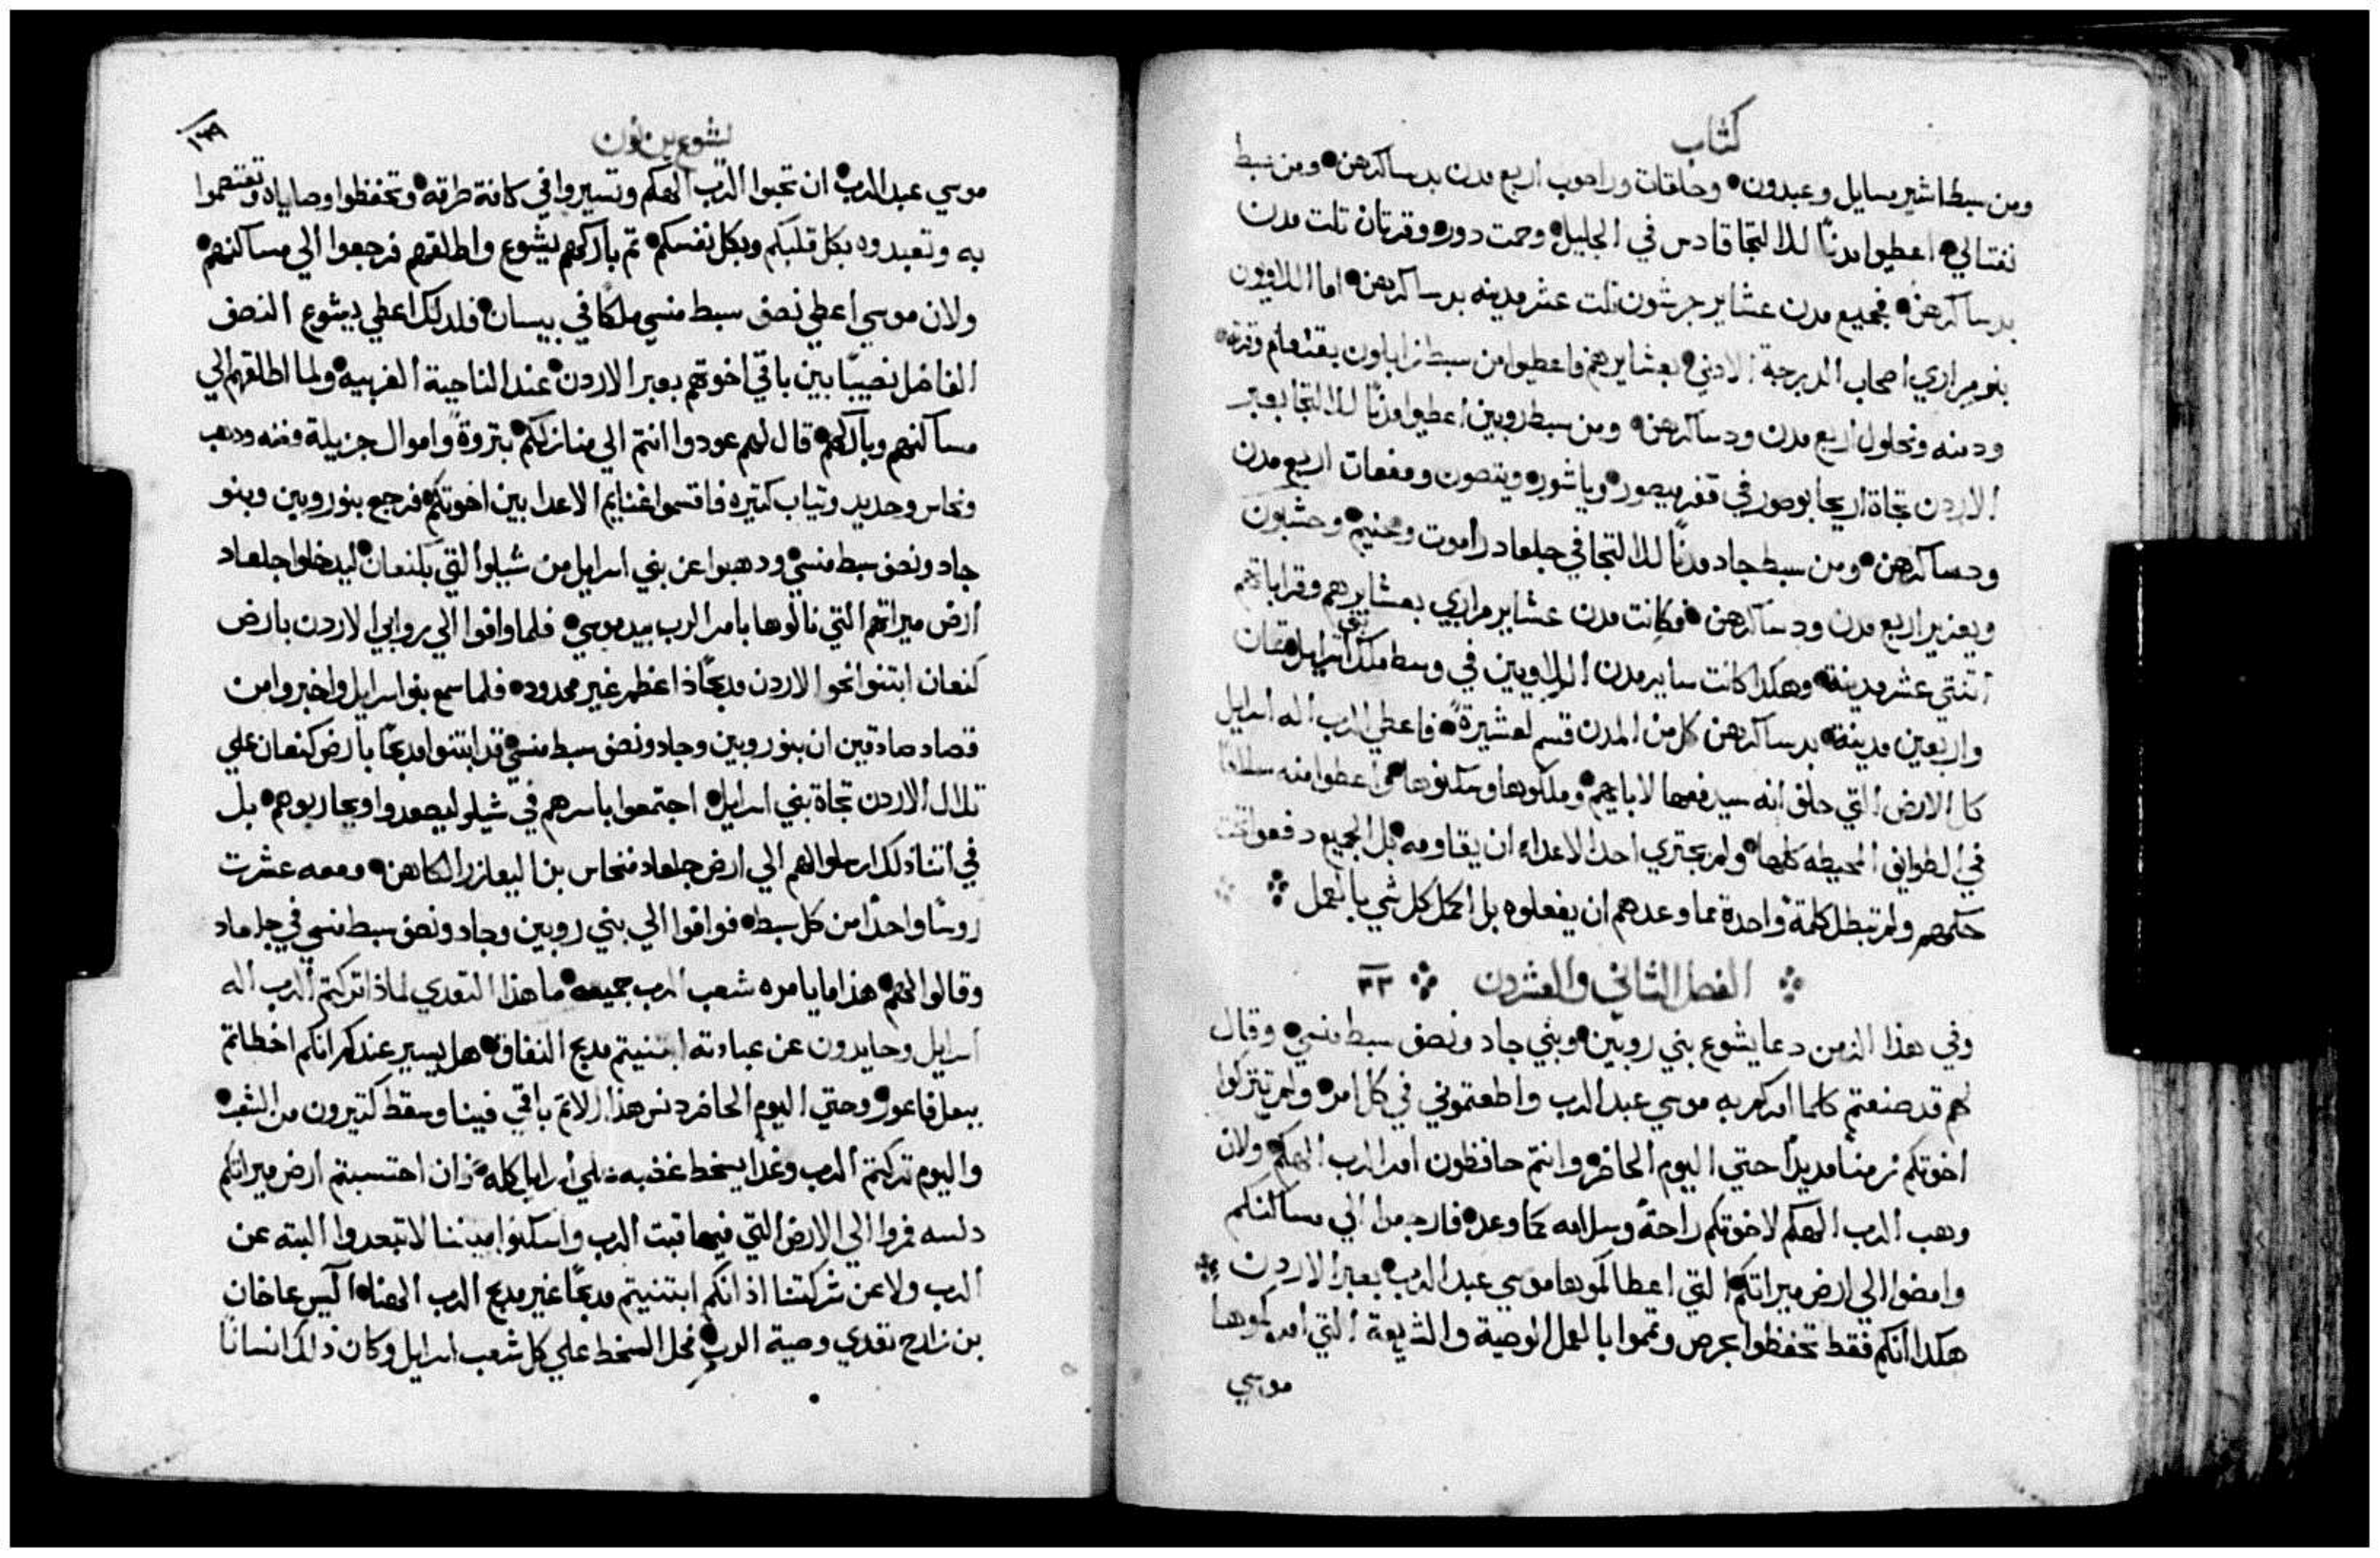 كتاب
ومن سبط اشير مسايل وعبدون● وحلقات وراحوب اربع مدن بدساكرهن● ومن سبط
نفتالي● اعطيوا مدنًا للالتجا قادس في الجليل● وحمت دور● وقرتان تلت مدن
بدساكرهن● فجميع مدن عشاير جرشون تلت عشر مدينه بدساكرهن● اما اللاويون
بنو مراري اصحاب الدرجة الادني● بعشايرهم فاعطيوا من سبط زابلون يقنعام وقرته●
ودمنه ونحلول اربع مدن ودساكرهن● ومن سبط روبين اعطيوا مدنًا للالتجا بعبر
الاردن تجاة اريحا بوصور في قفر ميصور● وياشور● ويتصون ومفعات اربع مدن
ودساكرهن● ومن سبط جاد مدنًا للالتجا في جلعاد راموت ومحنيم● وحشبون
ويعزير اربع مدن ودساكرهن● فكانت مدن عشاير مراري بعشايرهم وقراباتهم
اتنتي عشر مدينة● وهكدا كانت ساير مدن اللاويين في وسط ملك بني اسرايل تمان
واربعين مدينة● بدساكرهن كل من المدن قسم لعشيرة● فاعطي الرب اله اسرايل
كل الارض التي حلف انه سيدفعها لابايهم● وملكوها وسكنوها● واعطوا منه سلامًا
في الطوايف المحيطه كلها● ولم يجتري احد الاعداء ان يقاومه● بل الجميع دفعوا تحت
حكمهم ولم تبطل كلمة واحدة مما وعدهم ان يفعلوه بل اكمل كل شي بالعمل
الفصل الثاني والعشرون ٢٢
وفي هذا الزمن دعا يشوع بني روبين● وبني جاد ونصف سبط منسي● وقال
لهم قد صنعتم كلما امركم به موسي عبد الرب واطعتموني في كل امر● ولم تتركوا
اخوتكم زمنًا مديدًا حتي اليوم الحاضر● وانتم حافظون امر الرب الهكم● ولان
وهب الرب الهكم لاخوتكم راحةً وسلامه كما وعد● فارجعوا الي مساكنكم
وامضوا الي ارض ميراتكم● التي اعطاكموها موسي عبد الرب● بعبر الاردن
هكدا انكم فقط تحفظوا بحرص وتموا بالعمل الوصية والشريعة التي امركموها
موسي
يشوع بن نون
١٣٩
موسي عبد الرب● ان تحبوا الرب الهكم وتسيروا في كافة طرقه● وتحفظوا وصاياه وتعتصموا
به وتعبدوه بكل قلبكم وبكل نفسكم● تم باركهم يشوع واطلقهم فرجعوا الي مساكنهم●
ولان موسي اعطي نصف سبط منسي ملكًا في بيسان● فلدلك اعطي يشوع النصف
الفاضل نصيبًا بين باقي اخوتهم بعبر الاردن● عند الناحية الغربيه● ولما اطلقهم الي
مساكنهم وباركهم● قال لهم عودوا انتم الي منازلكم● بتروةً واموال جزيلة وفضه ودهب
ونحاس وحديد وتياب كتيره فاقتسموا غنايم الاعدا بين اخوتكم● فرجع بنو روبين وبنو
جاد ونصف سبط منسي● ودهبوا عن بني اسرايل من شيلوا التي بكنعان● ليدخلوا جلعاد
ارض ميراتهم التي نالوها بامر الرب بيد موسي● فلما وافوا الي روابي الاردن بارض
كنعان ابتنوا نحو الاردن مدبحًا ذا عظم غير محدود● فلما سمع بنو اسرايل واخبروا من
قصاد صادقين ان بنو روبين وجاد ونصف سبط منسي● قد ابتنوا مدبحًا بارض كنعان علي
تلال الاردن تجاة بني اسرايل● اجتمعوا باسرهم في شيلو ليصعدوا ويحاربوهم● بل
في اتنا دلك ارسلوا لهم الي ارض جلعاد فنحاس بن اليعازر الكاهن● ومعه عشرت
روسًا واحدًا من كل سبط● فوافوا الي بني روبين وجاد ونصف سبط منسي في جلعاد
وقالوا لهم● هذا ما يامره شعب الرب جميعه● ما هذا التعدي لماذا تركتم الرب اله
اسرايل وحايدون عن عبادته ابتنيتم مدبح النفاق● هل يسير عندكم انكم اخطاتم
ببعل فاعور● وحتي اليوم الحاضر دنس هذا الاتم باقي فينا وسقط كتيرون من الشعب●
واليوم تركتم الرب وغدًا يسخط غضبه علي اسرايل كله● فان احتسبتم ارض ميراتكم
دنسه فمروا الي الارض التي فيها قبت الرب واسكنوا بيننا لا تبعدوا البته عن
الرب ولا عن شركتنا اذ انكم ابتنيتم مدبحًا غير مدبح الرب الهنا● اليس عاخان
بن زارح تعدي وصية الرب● فحل السخط علي كل شعب اسرايل وكان ذالك انسانًا